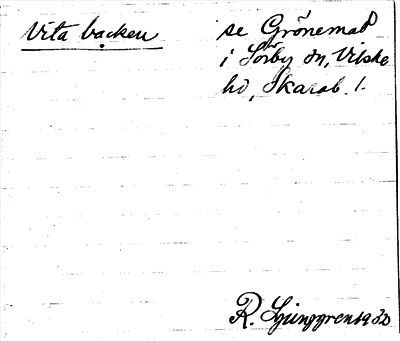 Vita backen
se Grönemad
i Sörby sn, Vilske
hd, Skarab. l.
R. Ljunggren 1930